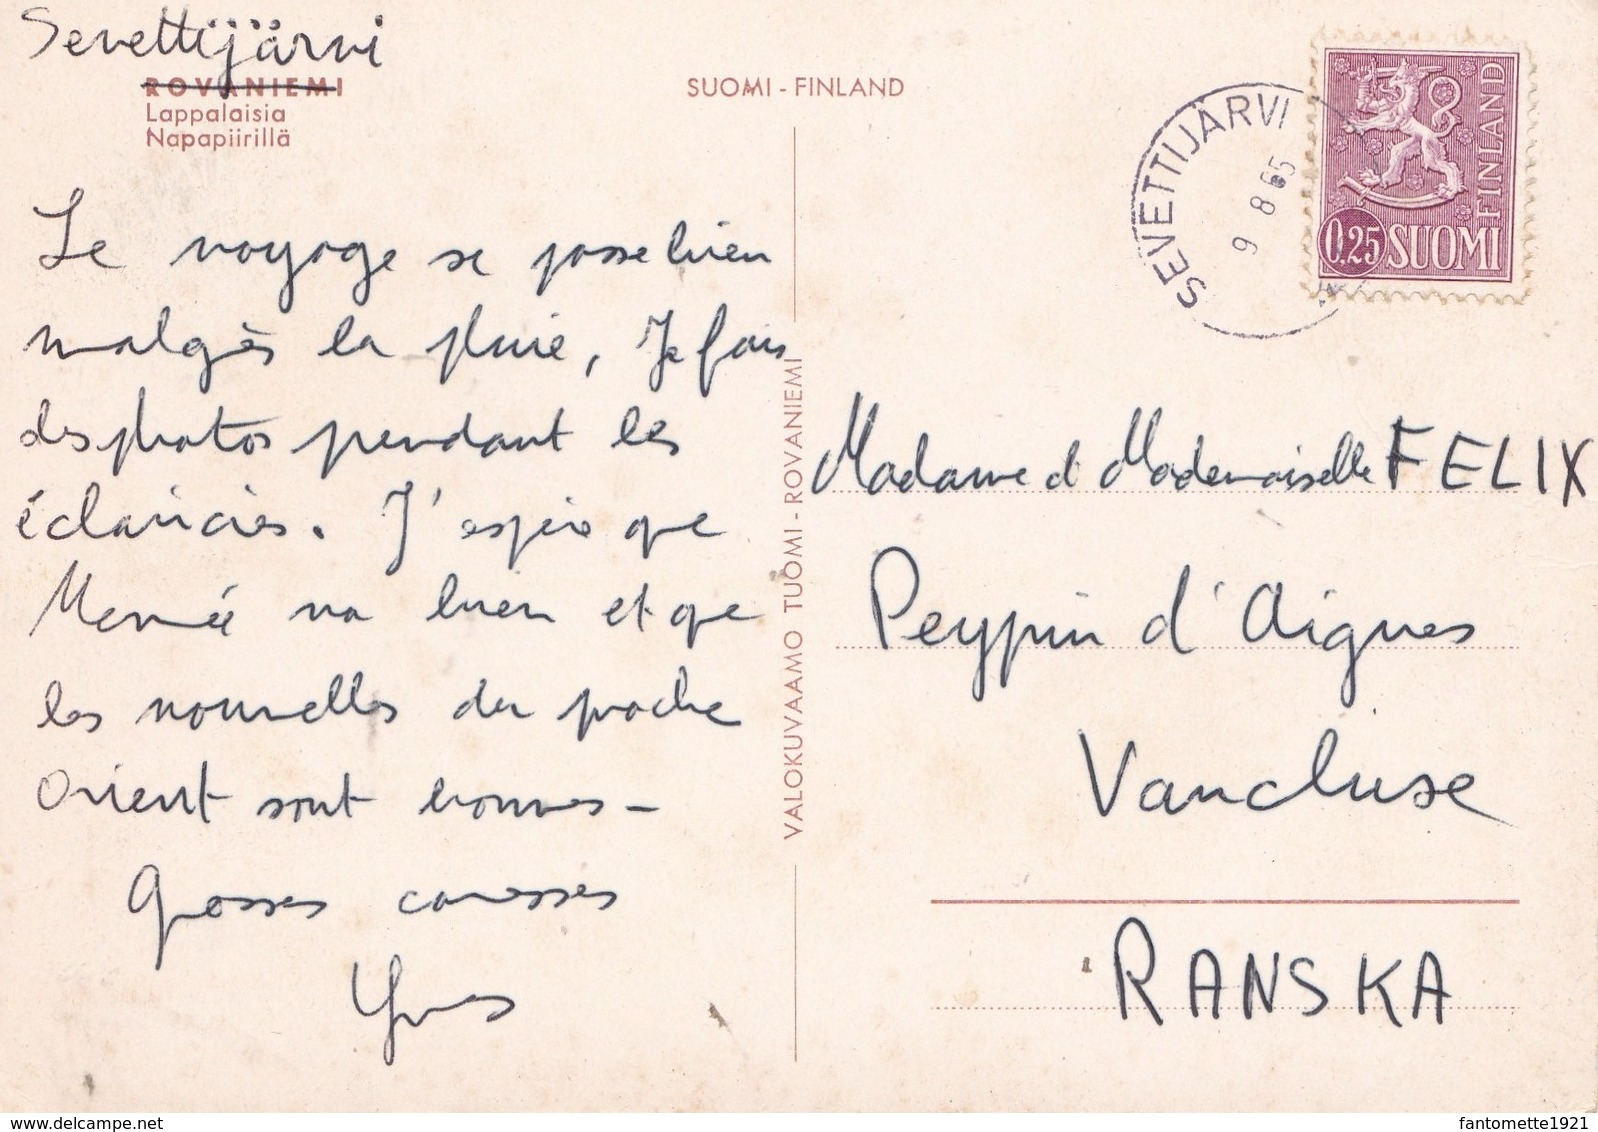 Sevettijärvi
ROVANIEMI
Lappalaisia
Napapiirillä
SUOMI - FINLAND
SEVETTIJÄRVI
9 8 65
FINLAND
0,25 SUOMI
Le voyage se passe bien
malgrès la pluie, Je fais
des photos pendant les
éclaircies. J'espère que
Mémé va bien et que
les nouvelles du proche
Orient sont bonnes -
Grosses caresses
Yves
VALOKUVAAMO TUOMI - ROVANIEMI
Madame et Mademoiselle FELIX
Peypin d'Aigues
Vaucluse
RANSKA
fantomette1921